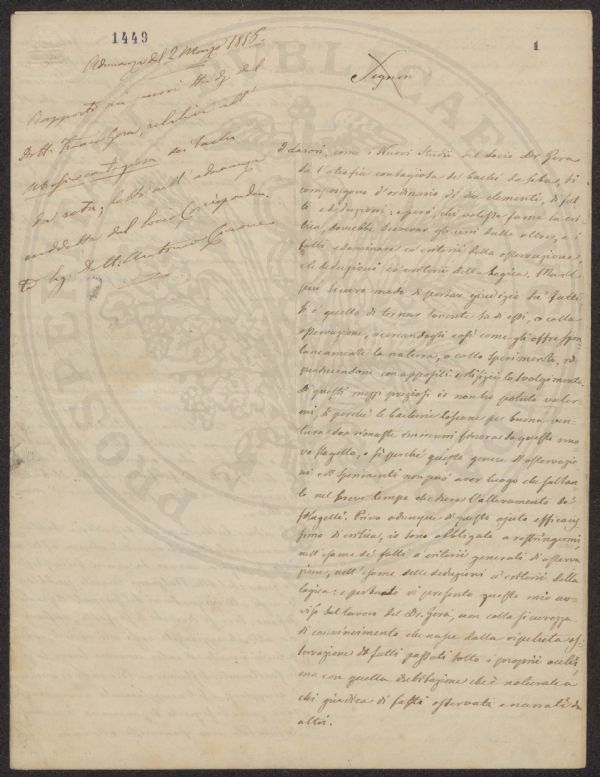 1449
1
Adunanza del 2 Marzo 1856
Rapporto sui nuovi studj del
Dott. Franc. Gera, relativi all'
atrofia contagiosa dei bachi
da seta, letto nell'adunanza
suddetta dal Socio Corrisponden-
te Sig. Dott. Antonio
Signori
I lavori, come i Nuovi Studii del socio Dr Gera
su l'atrofia contagiosa de' bachi da seta, si
compongono d'ordinario di due elementi, di fat-
ti e deduzioni: e però, chi volesse farne la cri-
tica, dovrebbe sceverar gli uni dalle altre, e i
fatti esaminare co' criterii della osservazione,
le deduzioni co' criterii della logica. Ma il
più sicuro modo di portar giudizio su' fatti,
si è quello di tornar sovente su di essi, o colla
osservazione, ricercandogli così come gli offre spon-
taneamente la natura, o collo sperimento, ri-
producendone con appositi artifizii lo svolgimento.
Di questi mezzi preziosi io non ho potuto valer-
mi, sì perché le bacherie toscane per buona ven-
tura son rimaste immuni finora da questo nuo-
vo flagello, e sì perché questo genere di osservazio-
ni e di sperimenti non può aver luogo che soltan-
to nel breve tempo che dura l'allevamento de'
filugelli. Privo adunque di questo ajuto efficacis-
simo di critica, io sono obbligato a restringermi,
nell'esame de' fatti a criterii generali di osserva-
zione, nell'esame delle deduzioni a' criterii della
logica: e pertanto vi presento questo mio av-
viso sul lavoro del Dr. Gera, non colla sicurezza
di convincimento che nasce dalla ripetuta os-
servazione di fatti passati sotto i proprii occhi,
ma con quella dubitazione che è naturale a
chi giudica di fatti osservati e narrati da
altri.
PRO SPE
PUBLICAE